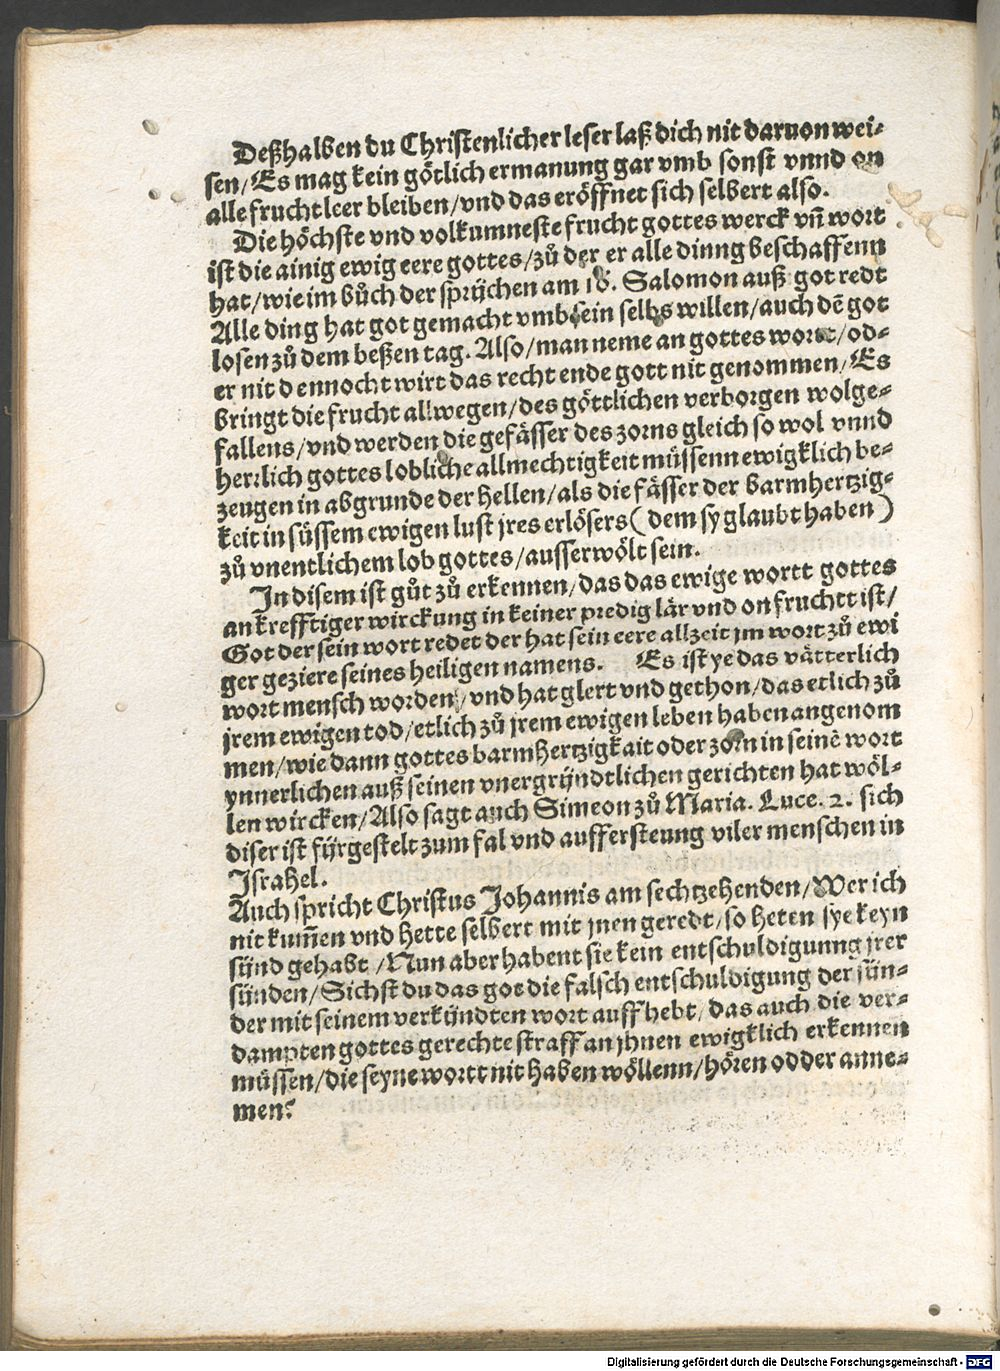 Deßhalben du Christenlicher leser laß dich nit daruon wei-
sen/ Es mag kein götlich ermanung gar vmb sonst vnnd on
alle frucht leer bleiben/vnd das eröffnet sich selbert also.
Die höchste vnd volkumneste frucht gottes werck vn̄ wort
ist die ainig ewig eere gottes/zů der er alle dinng beschaffenn
hat/wie im bůch der sprijchen am 16. Salomon auß got redt
Alle ding hat got gemacht vmb sein selbs willen/auch dē got
losen zů dem beßen tag. Also/man neme an gottes wortt/od-
er nit dennocht wirt das recht ende gott nit genommen/Es
bringt die frucht allwegen/des göttlichen verborgen wolge-
fallens/vnd werden die gefässer des zorns gleich so wol vnnd
herrlich gottes lobliche allmechtigkeit müssenn ewigklich be-
zeugen in abgrunde der hellen/als die fässer der barmhertzig-
keit in süssem ewigen lust jres erlösers (dem sy glaubt haben)
zů vnentlichem lob gottes/ausserwölt sein.
In disem ist gůt zů erkennen/das das ewige wortt gottes
an krefftiger wirckung in keiner predig lär vnd on fruchtt ist/
Got der sein wort redet der hat sein eere allzeit jm wort zů ewi
ger geziere seines heiligen namens. Es ist ye das vätterlich
wort mensch worden/vnd hat glert vnd gethon/das etlich zů
jrem ewigen tod/etlich zů jrem ewigen leben haben angenom
men/wie dann gottes barmhertzigkait oder zorn in seinē wort
ynnerlichen auß seinen vnergrijndtlichen gerichten hat wöl-
len wircken/Also sagt auch Simeon zů Maria. Luce. 2. sich
diser ist fijrgestelt zum fal vnd aufferstеung viler menschen in
Israhel.
Auch spricht Christus Johannis am sechtzehenden/Wer ich
nit kum̄en vnd hette selbert mit jnen geredt/so heten sye keyn
sijnd gehabt/Nun aber habent sie kein entschuldigunng jrer
sijnden/Sichst du das got die falsch entschuldigung der sün-
der mit seinem verkijndten wort auff hebt/das auch die ver-
dampten gottes gerechte straff an jhnen ewigklich erkennen
müssen/die seyne wortt nit haben wöllenn/hören odder anne-
men?
Digitalisierung gefördert durch die Deutsche Forschungsgemeinschaft - DFG